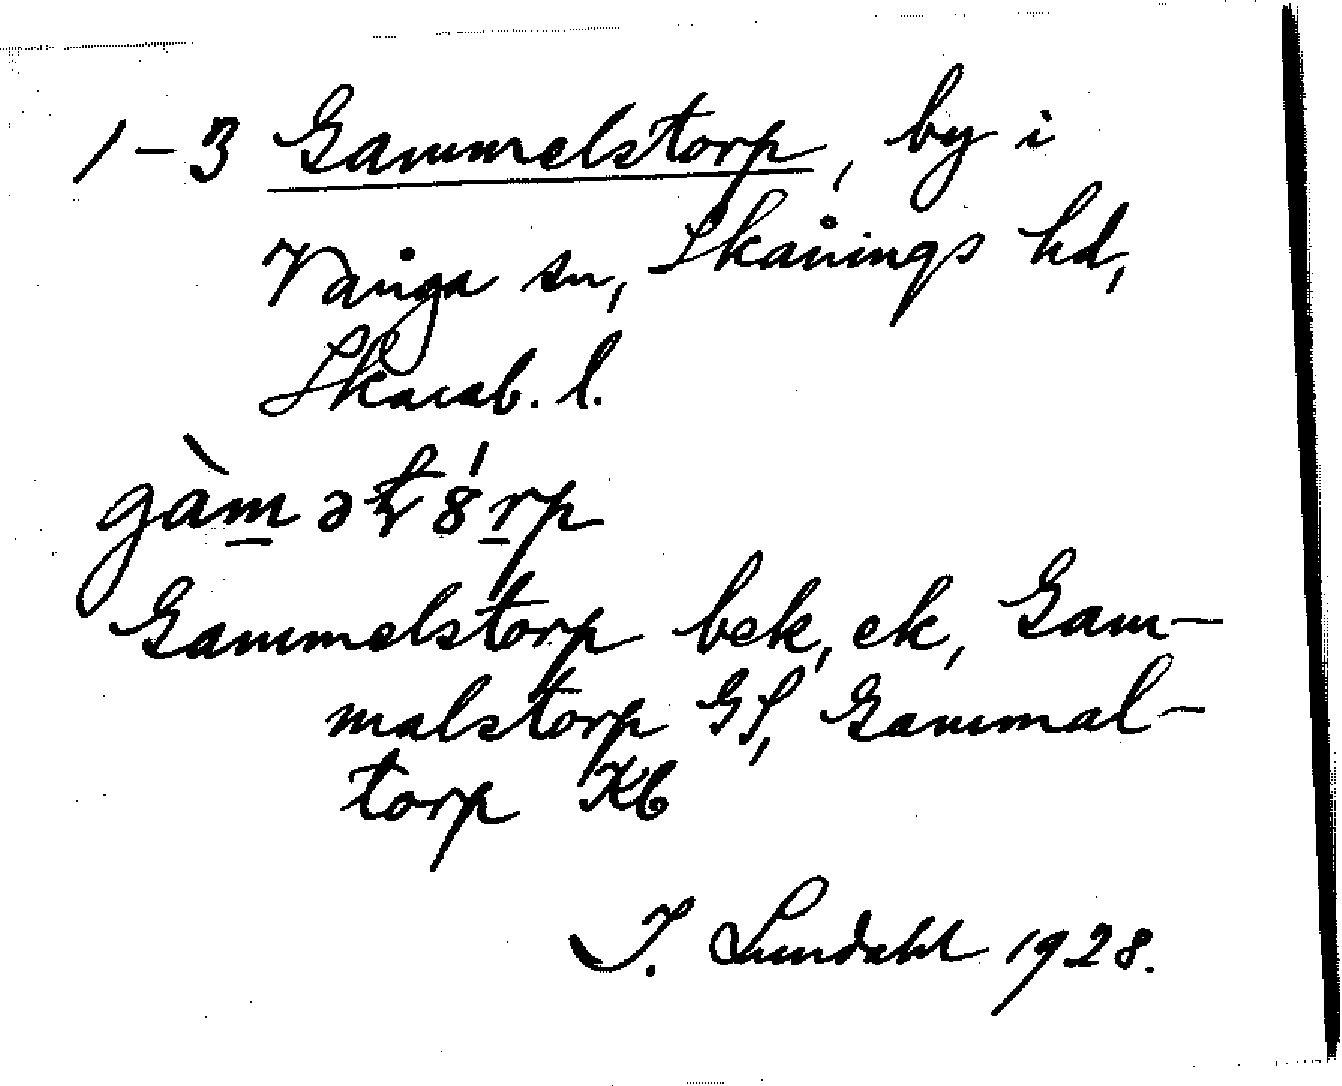 1-3 Gammelstorp, by i
Vånga sn, Skånings hd,
Skarab. l.
gàmət8́rp
Gammelstorp bek, ek, Gam-
malstorp GS, Gammal-
torp Kb
I. Lundahl 1928.